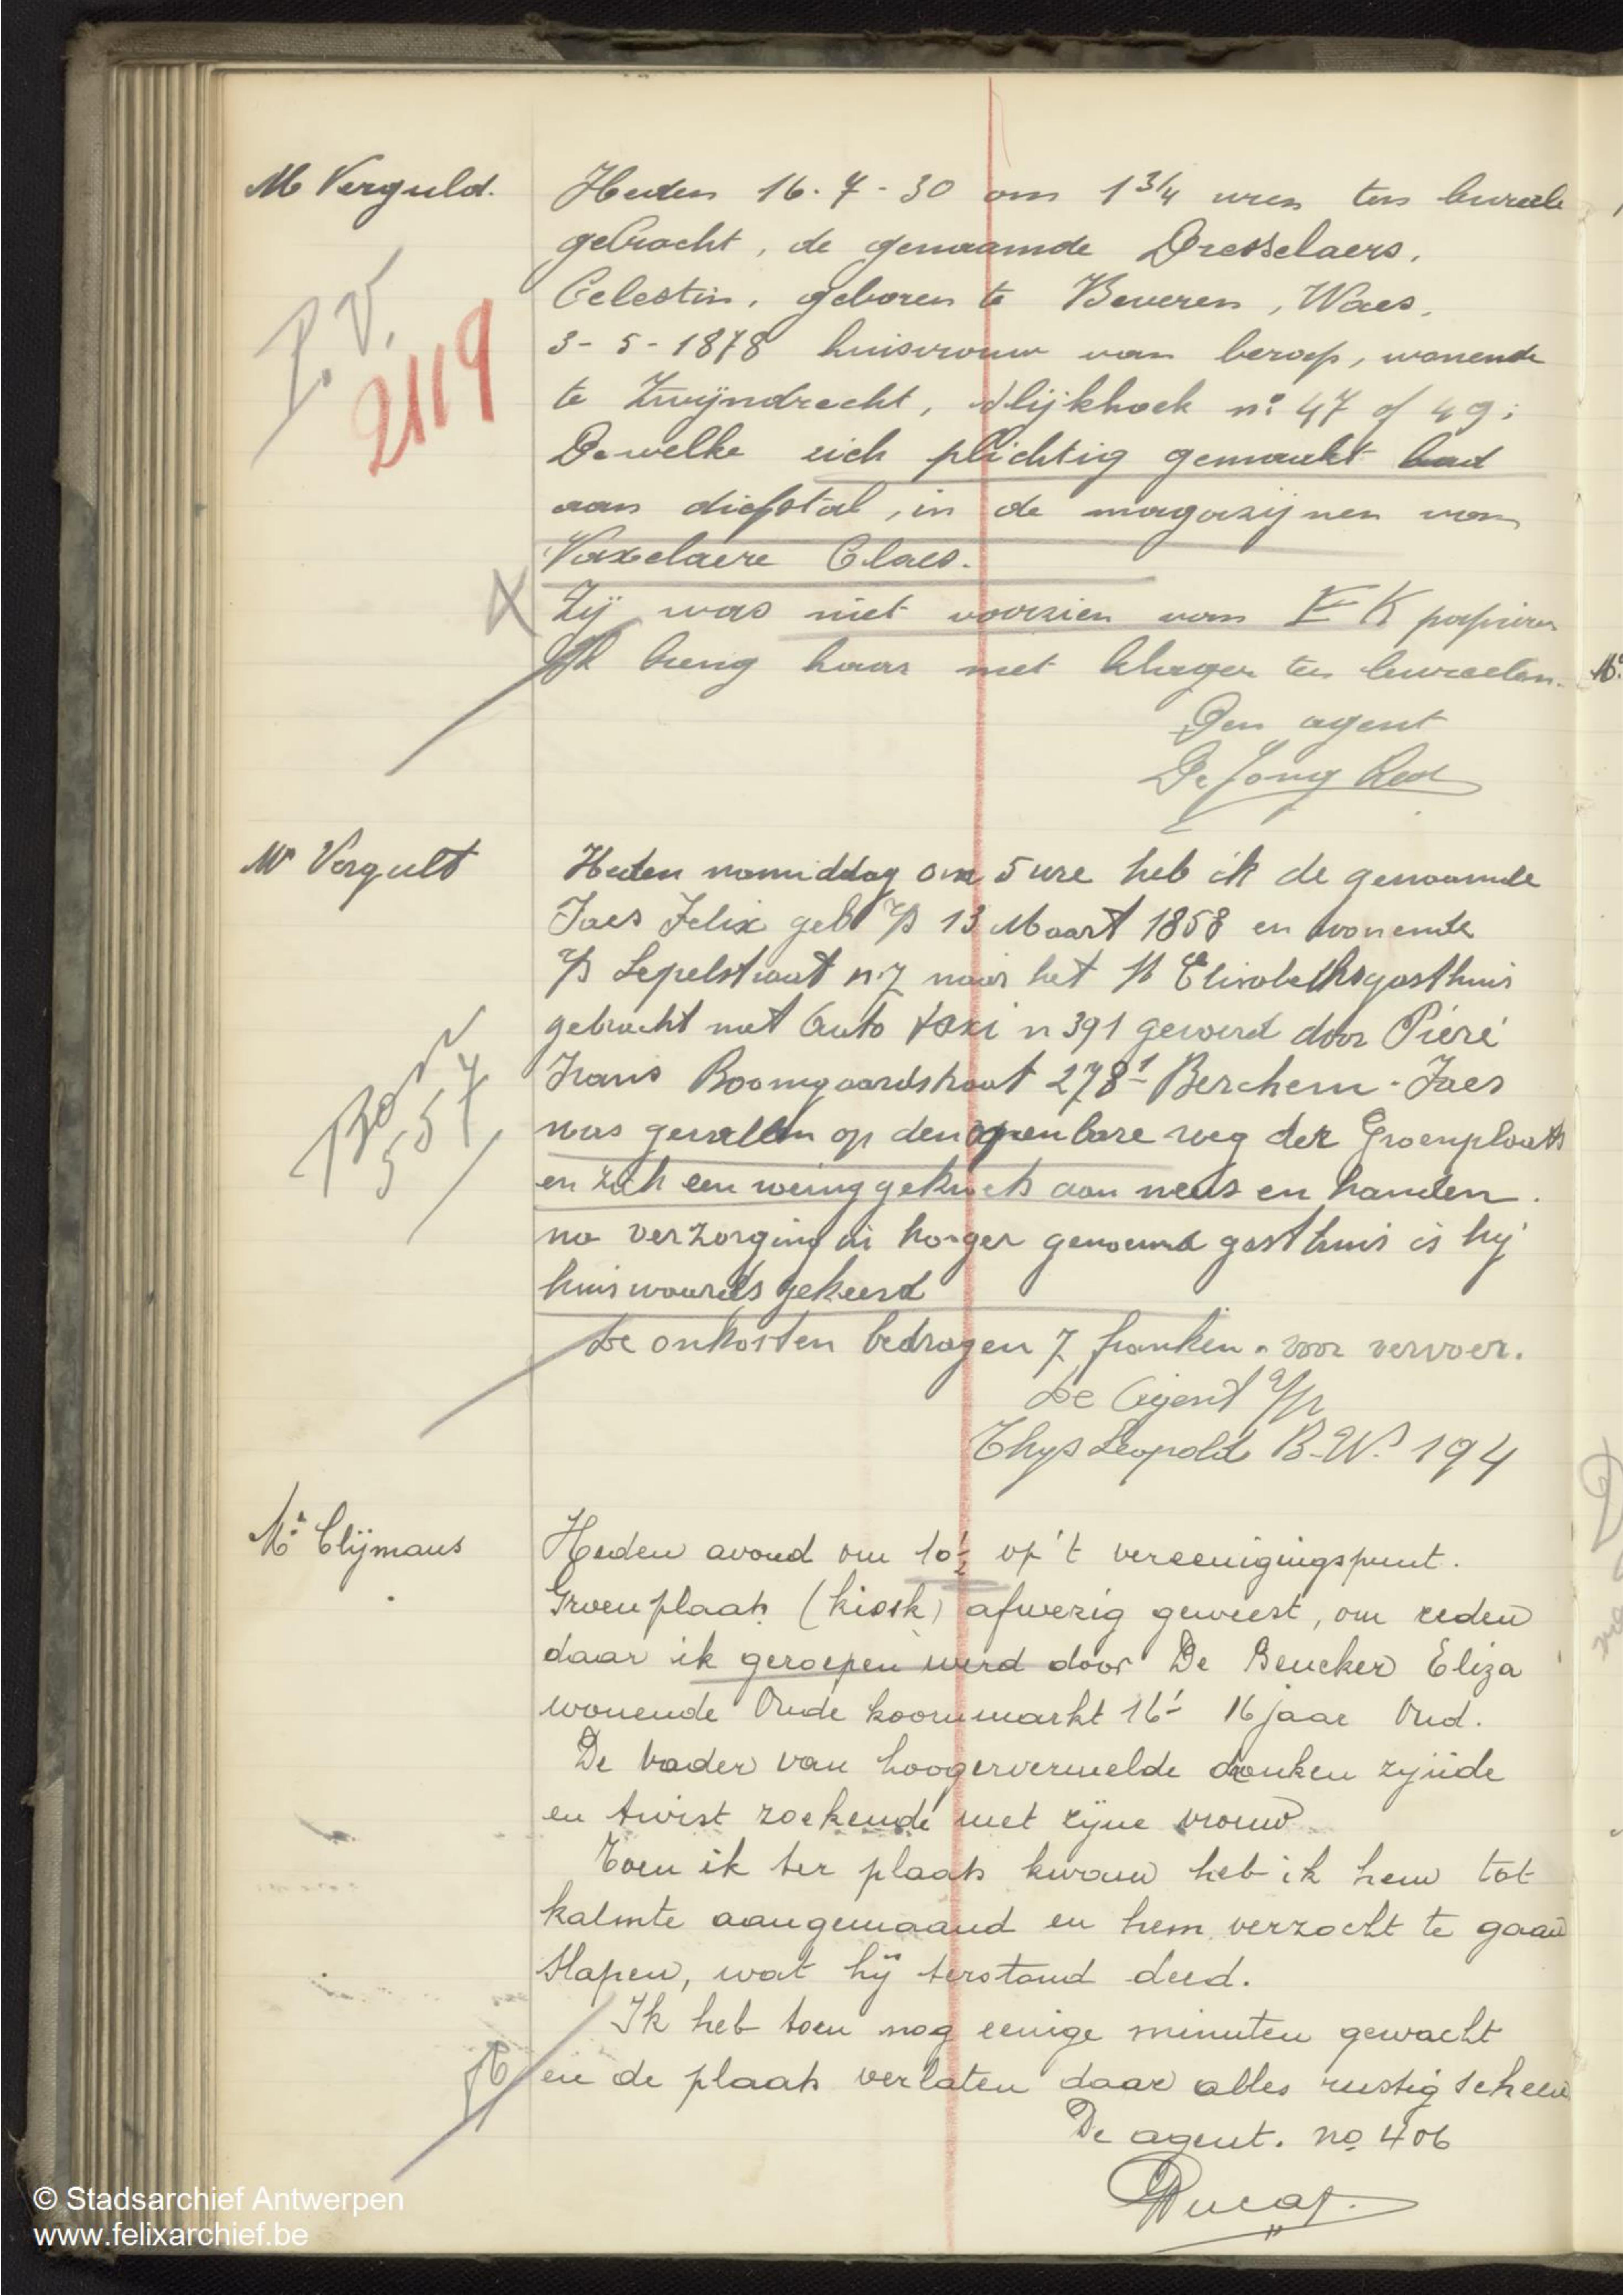 M Verguld.
Heden 16. 7 - 30 om 1 3/4 uren ten bureele
gebracht, de genaamde Dresselaers,
Celestin, geboren te Beveren, Waes,
3 - 5 - 1878 huisvrouw van beroep, wonende
te Zwijndrecht, Slijkhoek n: 47 of 49;
Dewelke zich plichtig gemaakt had
aan diefstal, in de magazijnen van
Vaxelaere Claes.
Zij was niet voorzien van E K papieren
Ik breng haar met klager ten bureelen.
Den agent
De Jong
P. V.
2119
Mr Vergult
Heden namiddag om 5 ure heb ik de genaamde
Jaes Felix geb t/s 13 Maart 1858 en wonende
t/s Lepelstraat n. 7 naar het St Elisabethsgasthuis
gebracht met Auto taxi n 391 gevoerd door Piéré
Frans Boomgaardstraat 278 1 Berchem - Jaes
was gevallen op den openbare weg der Groenplaats
en zich een weinig gekwets aan neus en handen.
na verzorging in hooger genoemd gasthuis is hij
huiswaards gekeerd
De onkosten bedragen 7 franken. voor vervoer.
De Agent
Thys Leopold B.W. 194
557
Mr Clijmans
Heden avond om 10 1/2 op 't vereenigingspunt.
Groenplaats (kiosk) afwezig geweest, om reden
daar ik geroepen werd door De Beucker Eliza
wonende Oude koornmarkt 16 1 16 jaar Oud.
De vader van hoogervermelde dronken zijnde
en twist zoekende met zijne vrouw
Toen ik ter plaats kwam heb ik hem tot
kalmte aangemaand en hem verzocht te gaan
slapen, wat hij terstond deed.
Ik heb toen nog eenige minuten gewacht
en de plaats verlaten daar alles rustig scheen
De agent. no 406
© Stadsarchief Antwerpen
www.felixarchief.be